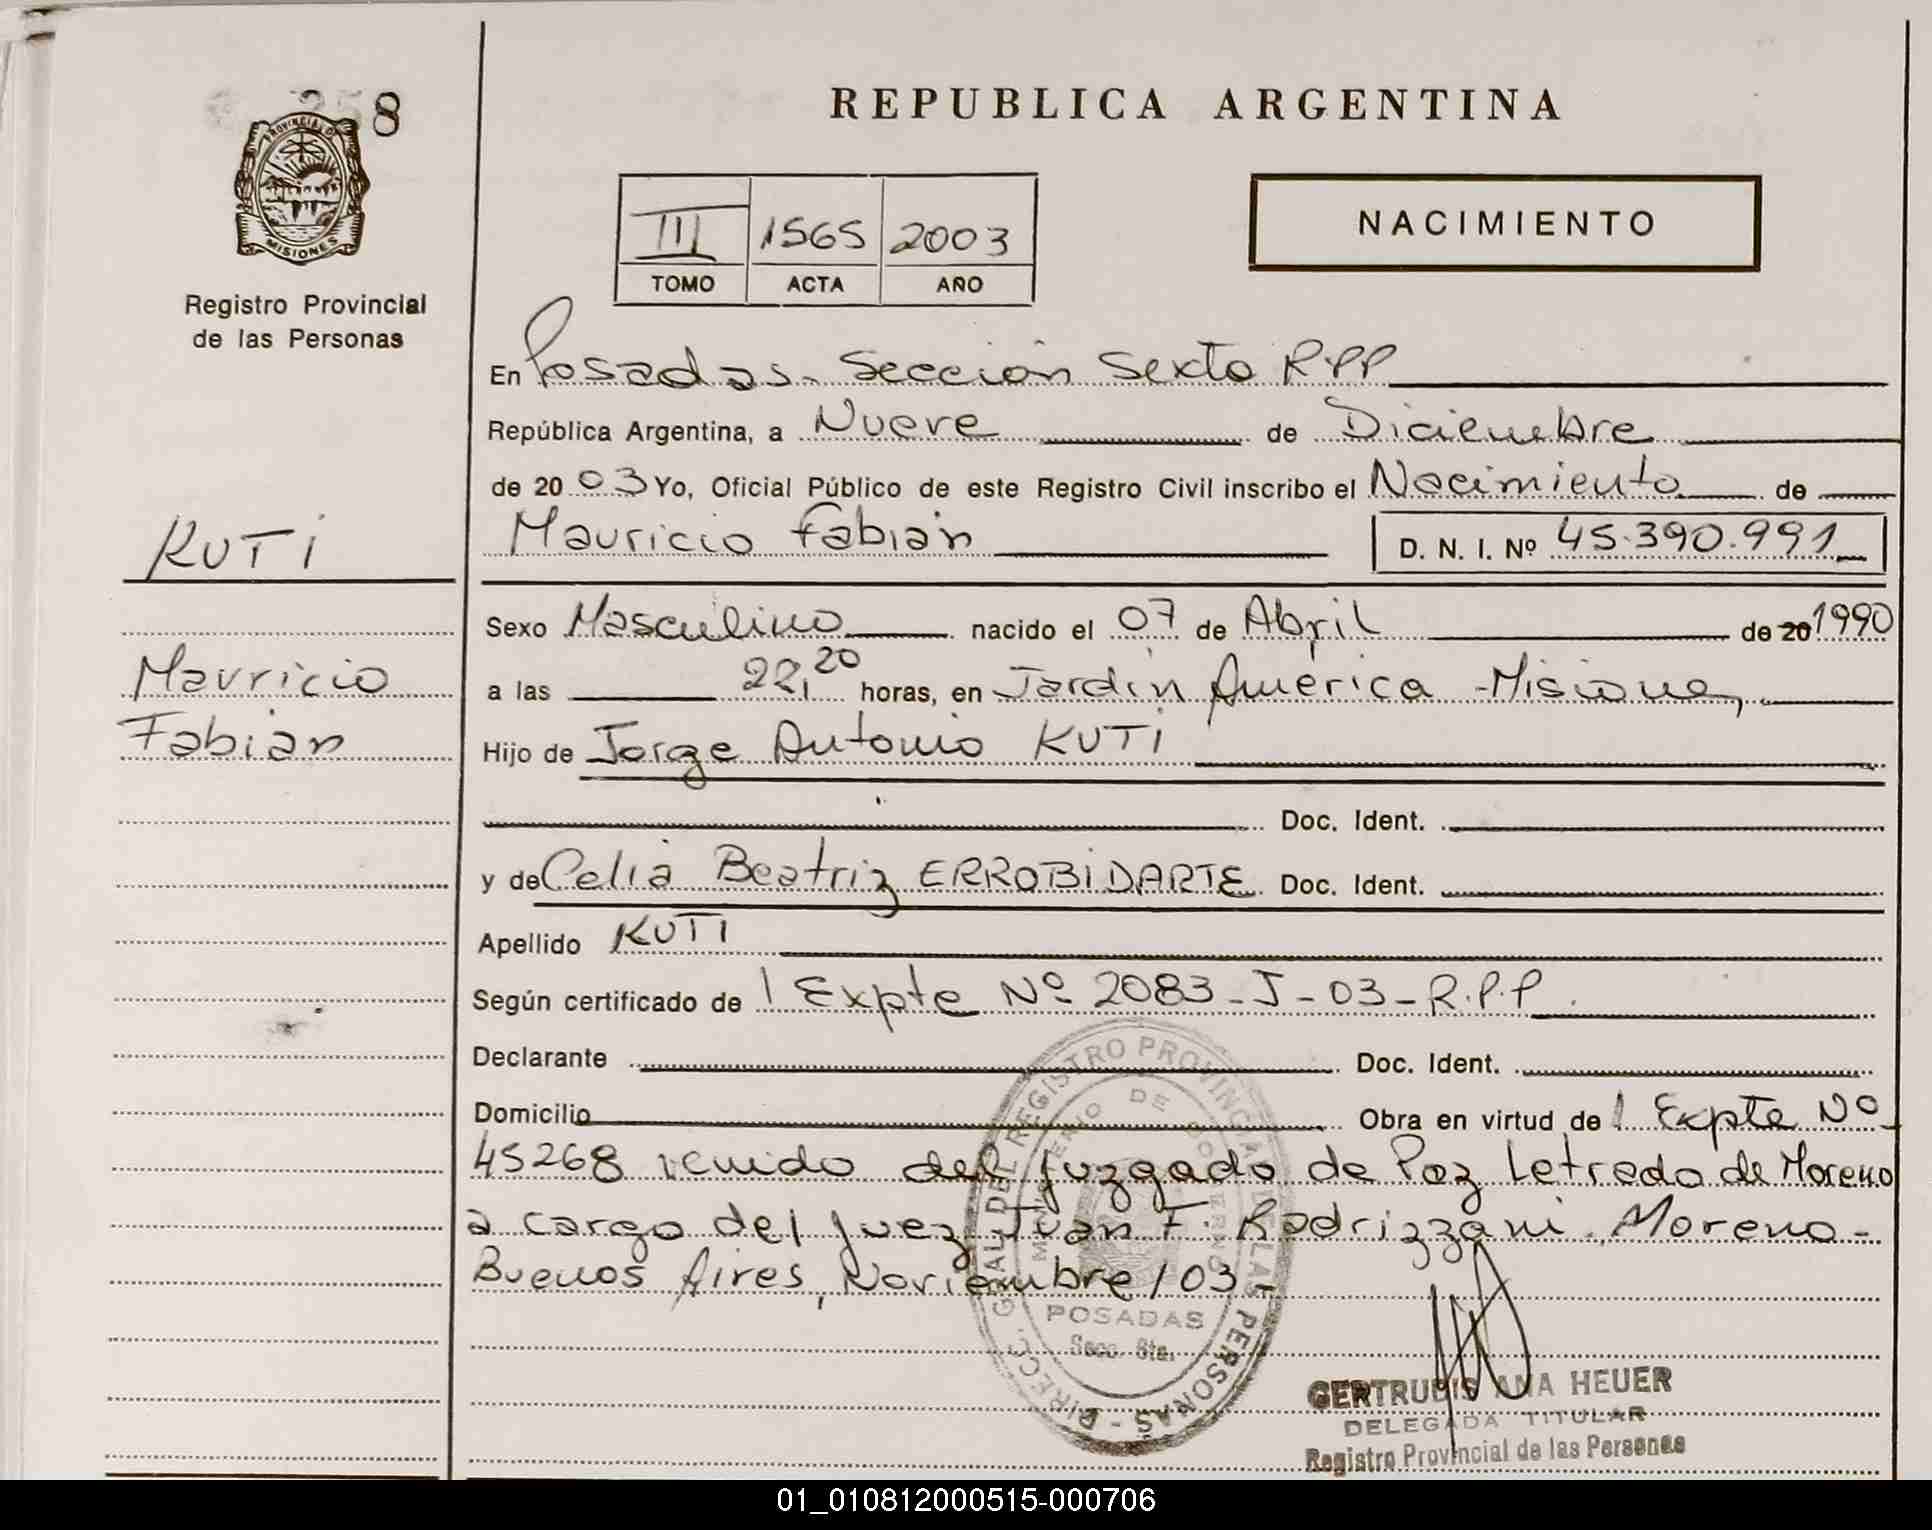 258
PROVINCIA DE
MISIONES
Registro Provincial
de las Personas
KUTI
Mauricio
Fabián
REPUBLICA ARGENTINA
III 1565 2003
TOMO ACTA AÑO
NACIMIENTO
En Posadas. Sección Sexta R.P.P
República Argentina, a Nueve de Diciembre
de 2003 Yo, Oficial Público de este Registro Civil inscribo el Nacimiento de
Mauricio Fabián D. N. I. Nº 45.390.991
Sexo Masculino nacido el 07 de Abril de 20 1990
a las 22,20 horas, en Jardín América - Misiones,
Hijo de Jorge Antonio KUTI
Doc. Ident.
y de Celia Beatriz ERROBIDARTE Doc. Ident.
Apellido KUTI
Según certificado de / Expte Nº 2083-J-03-R.P.P.
Declarante Doc. Ident.
Domicilio Obra en virtud de / Expte Nº
45268 venido del Juzgado de Paz Letrado de Moreno
a cargo del Juez Juan F. Radrizzani. Moreno-
Buenos Aires, Noviembre/03-
DIRECC. GRAL. DEL REGISTRO PROVINCIAL DE LAS PERSONAS
MINISTERIO DE GOBIERNO
POSADAS
Secc. 6ta.
GERTRUDIS ANA HEUER
DELEGADA TITULAR
Registro Provincial de las Personas
01_010812000515-000706